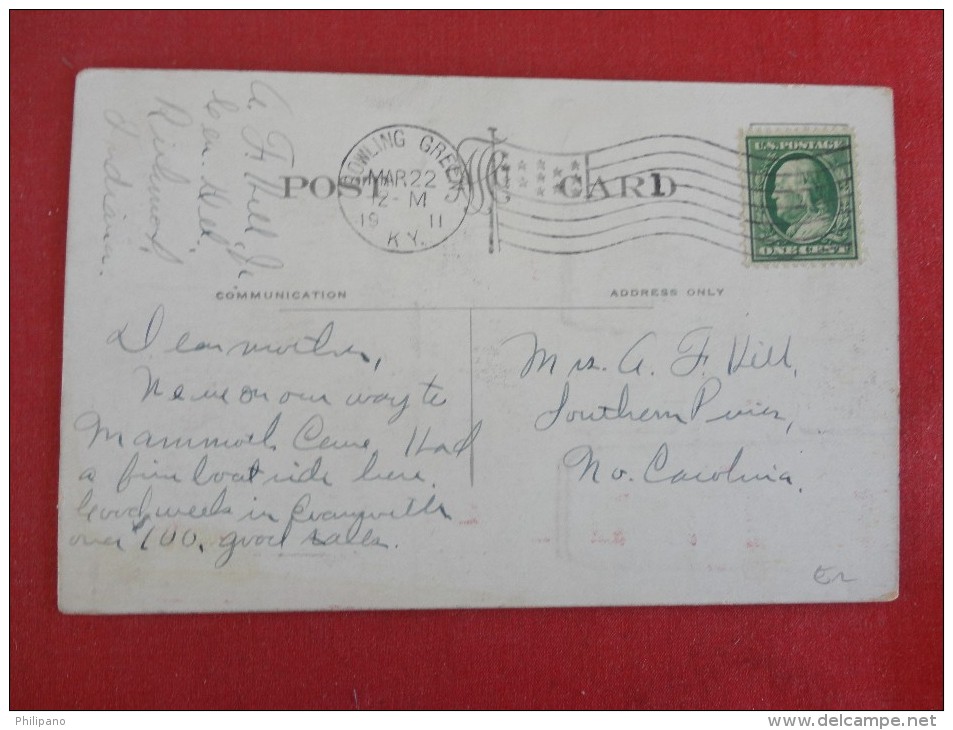 A. F. Hill Jr.
Gen. Del.
Richmond,
Indiana.
BOWLING GREEN
MAR 22
12-M
19 11
KY.
POST CARD
1
U.S. POSTAGE
ONE CENT
COMMUNICATION
ADDRESS ONLY
Dear mother,
We're on our way to
Mammoth Cave. Had
a fine boat ride here.
Good week in Evansville
over 100. good sales.
Mrs. A. F. Hill,
Southern Pines,
No. Carolina.
Philipano
www.delcampe.net